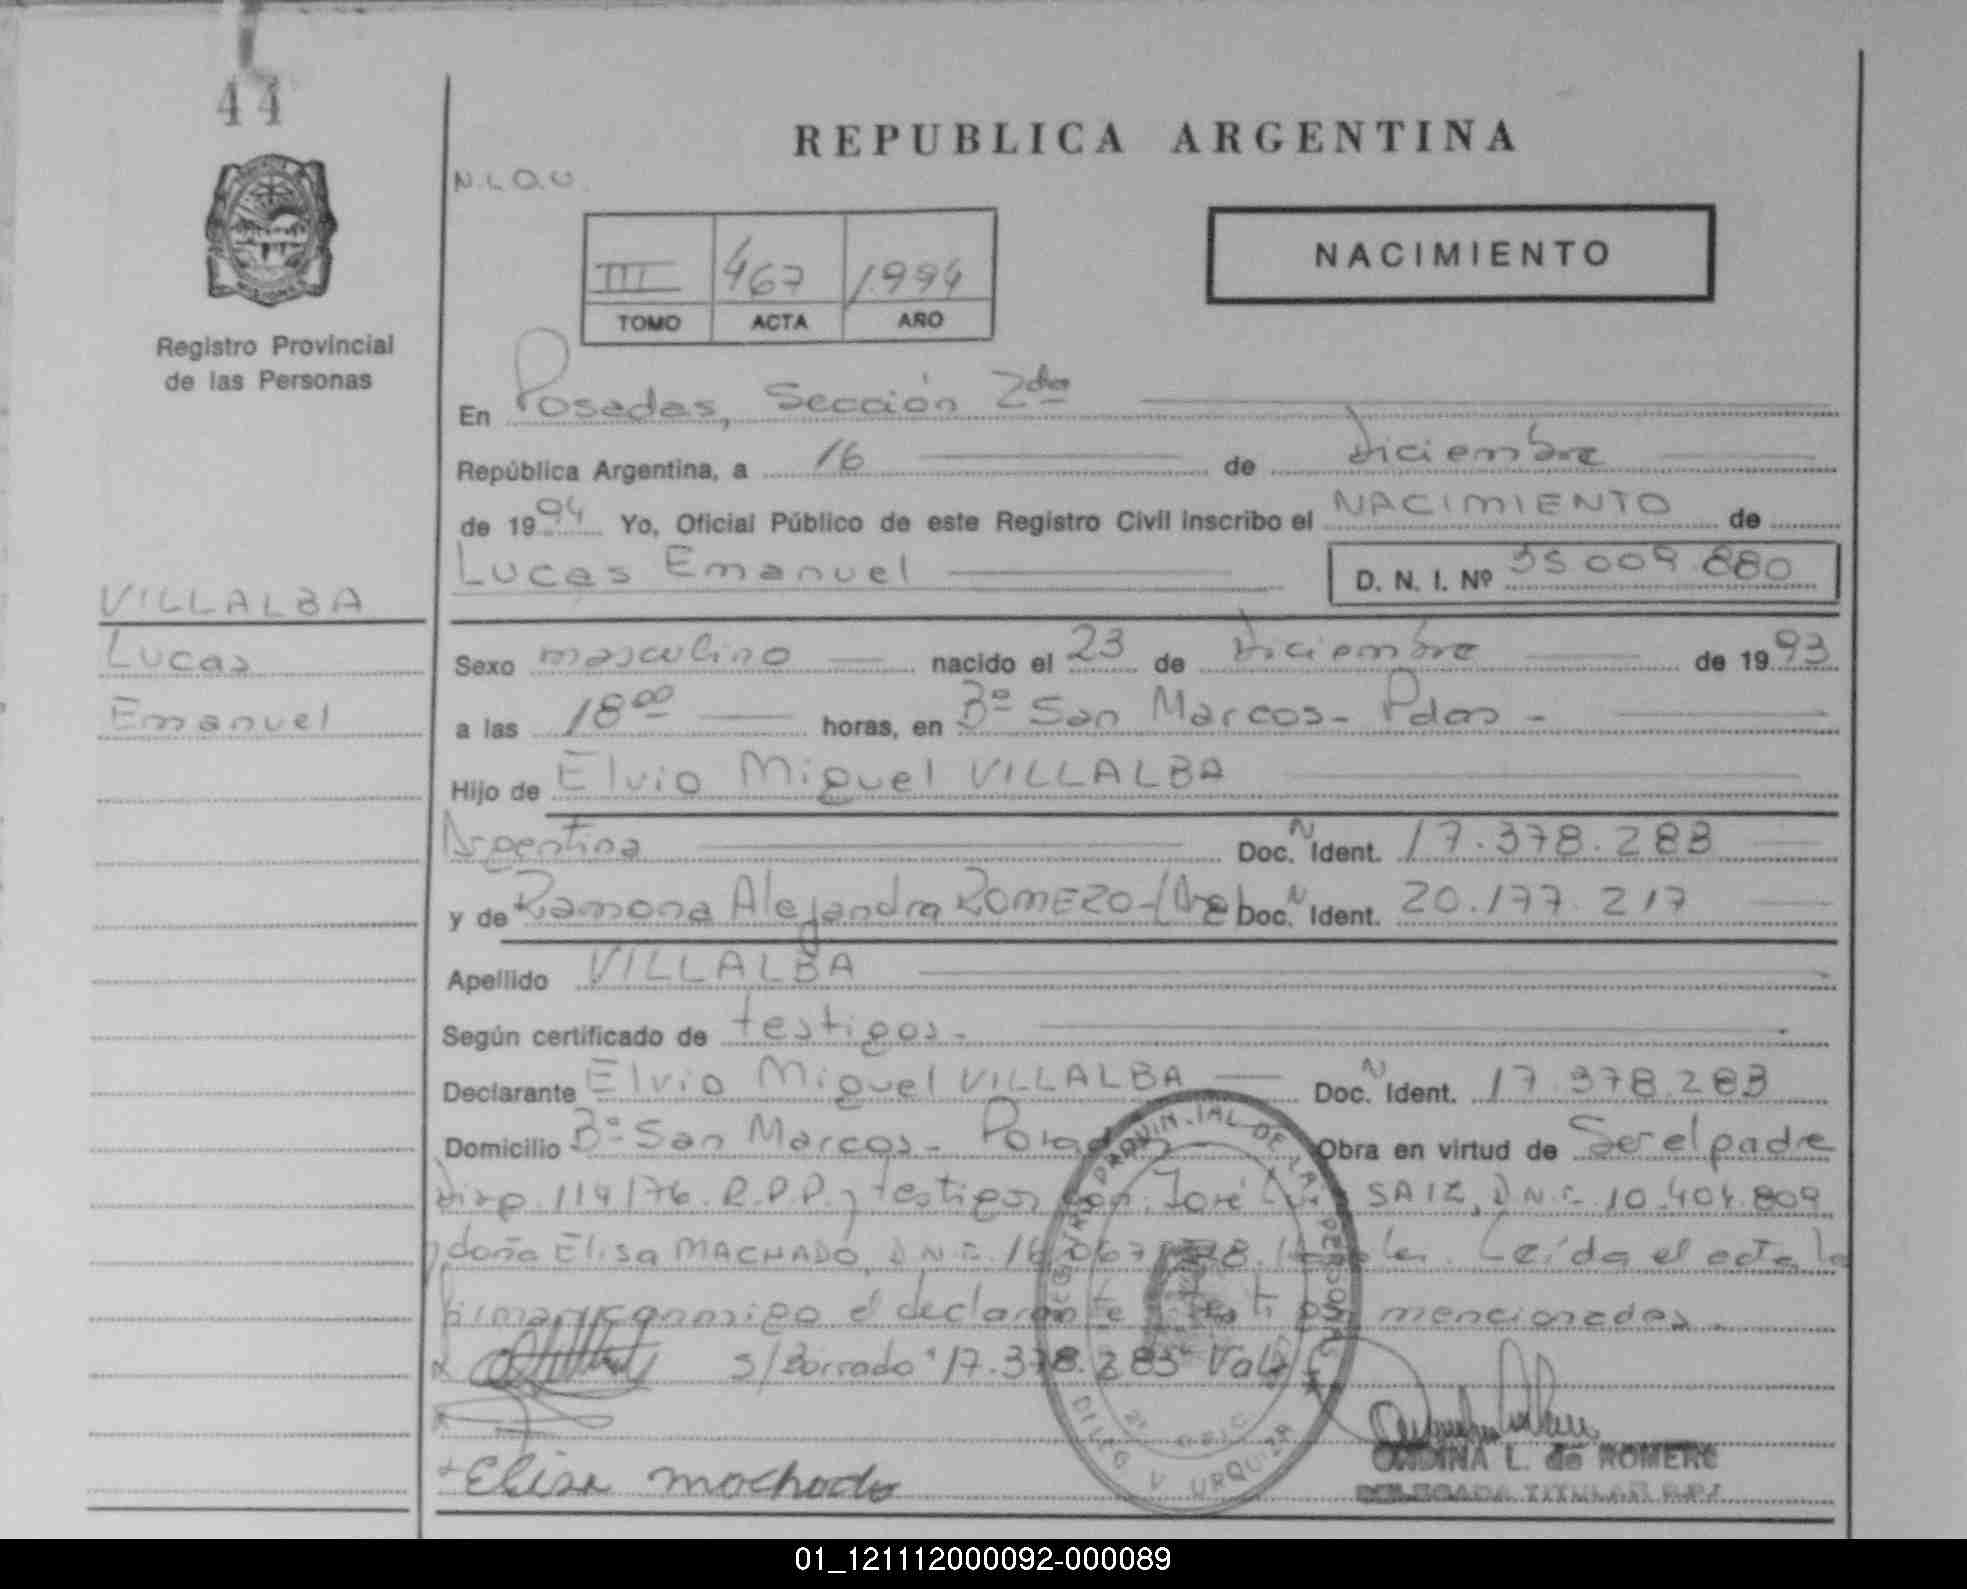 44
REPUBLICA ARGENTINA
N.L.O.U.
NACIMIENTO
III 467 1994
TOMO ACTA AÑO
Registro Provincial
de las Personas
En Posadas, Sección 2da
República Argentina, a 16 de Diciembre
de 1994 Yo, Oficial Público de este Registro Civil inscribo el NACIMIENTO de
Lucas Emanuel D. N. I. Nº 35 009.880
VILLALBA
Lucas
Emanuel
Sexo masculino nacido el 23 de Diciembre de 1993
a las 18 00 horas, en Bº San Marcos - Pdas -
Hijo de Elvio Miguel VILLALBA
Argentina Doc. N Ident. 17.378.283
y de Ramona Alejandra ROMERO - (Arg) Doc. N Ident. 20.177.217
Apellido VILLALBA
Según certificado de testigos -
Declarante Elvio Miguel VILLALBA Doc. N Ident. 17.378.283
Domicilio Bº San Marcos - Posadas - Obra en virtud de Ser el padre
Disp. 114/76. R.P.P. y testigos don José SAIZ, D.N.I. 10.404.809
y doña Elisa MACHADO, D.N.I. 16.067 Leída el acta la
firman conmigo el declarante y testigos mencionados.
S/Borrado "17.378.283" Vale
Elisa machado
ONDINA L. de ROMERO
DELEGADA TITULAR R.P.P.
REGISTRO PROVINCIAL DE LAS PERSONAS
2ª SECC
DELEG V URQUIZA
01_121112000092-000089